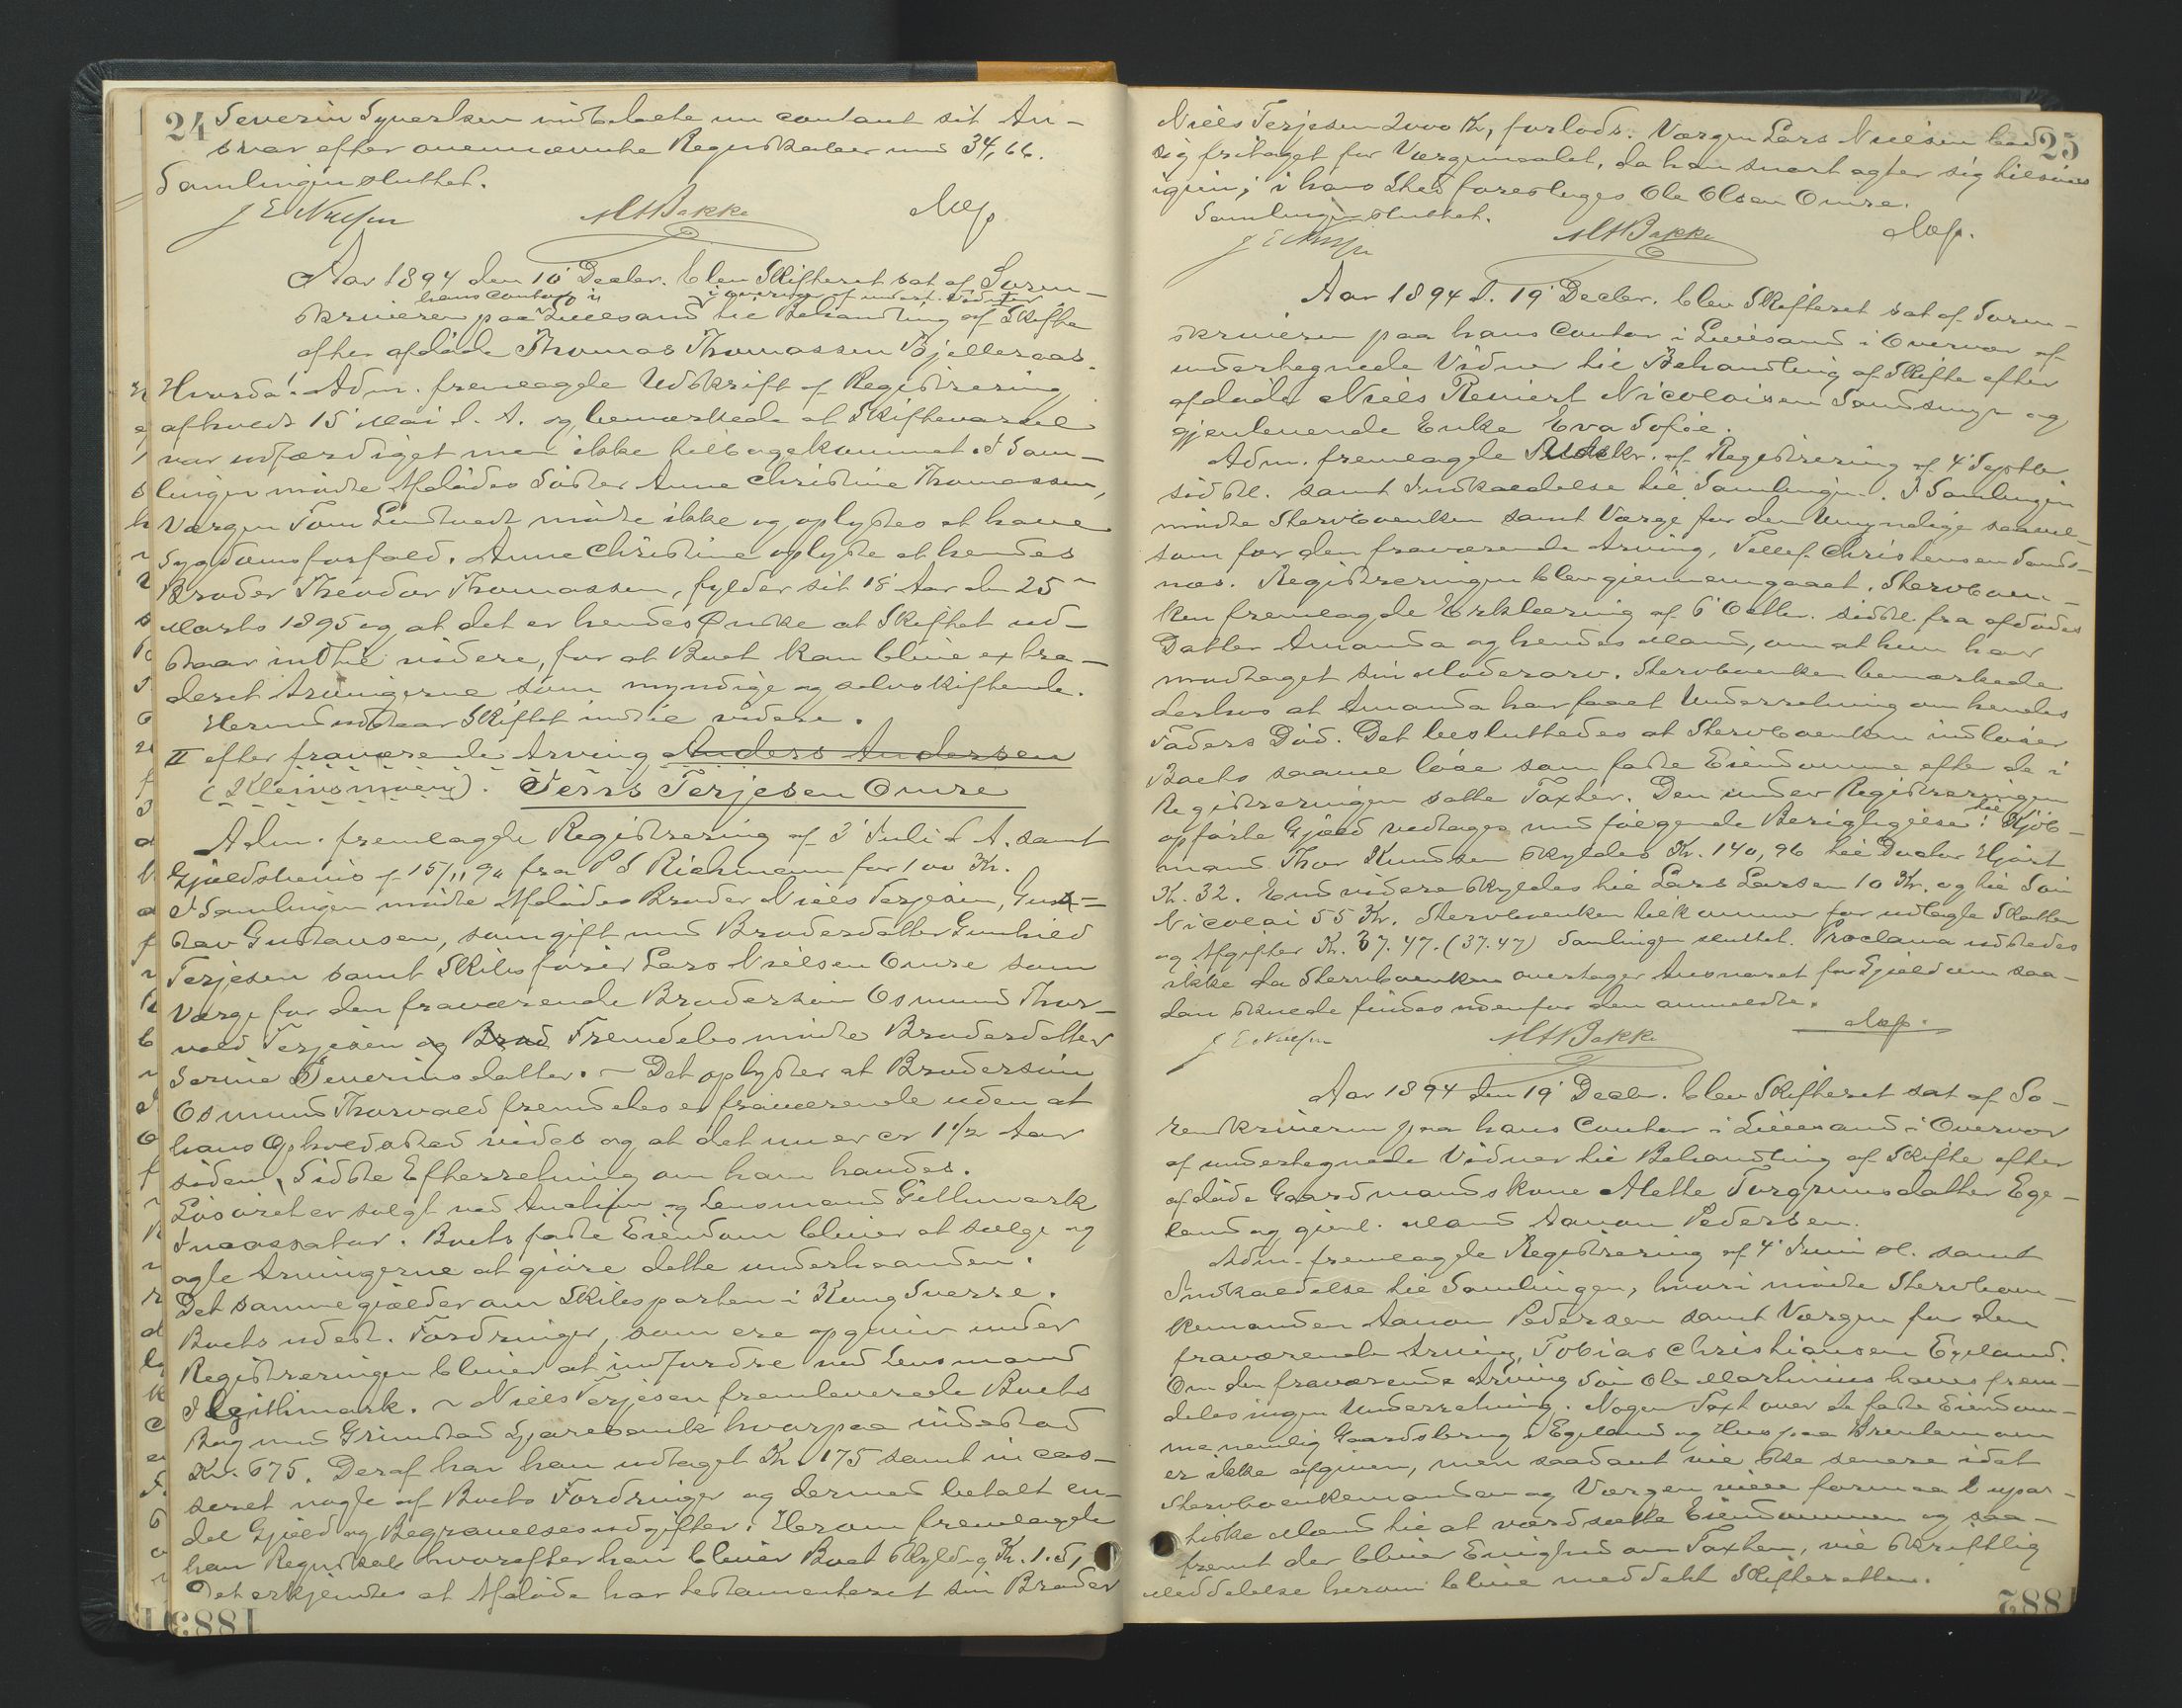 24
Severin Syvertsen indbetalte nu contant sit An-
svar efter ovennævnte Regnskaber med 34,66.
Samlingen sluttet.
J E Nielsen MHBakke Mep.
Aar 1894 den 10' Decbr. blev Skifteret sat af Soren-
hans Contor i i overvær af undert. Vidner
skriveren paa Lillesand til Behandling af Skifte
efter afdøde Thomas Thomassen Bjelleraas.
Hvorda! Adm. fremlagde Udskrift af Registrering
afholdt 15' Mai d. A. og bemærkede at Skiftevarsel
var udfærdiget men ikke tilbagekommet. I Sam-
lingen mødte Afdødes Søster Anne Christine Thomassen,
Værgen Tom Lindtvedt mødte ikke og oplystes at have
Sygdomsforfald. Anne Christine oplyste at hendes
Broder Theodor Thomassen, fylder sit 18' Aar den 25
Marts 1895 og at det er hendes Ønske at Skiftet ud-
staar indtil videre, for at Boet kan blive extra-
deret Arvingerne som myndige og selvskiftende.
Hermed udstaar Skiftet indtil videre.
II efter fraværende Arving Anders Andersen
(Kleivsmyren). Jens Terjesen Omre
Adm. fremlagde Registrering af 3' Juli d. A. samt
Gjældsbevis af 15/11 90 fra P S Richmann for 100 Kr.
I Samlingen mødte Afdødes Broder Niels Terjesen, Gus-
tav Gustavsen, som gift med Broderdatter Gunhild
Terjesen samt Skibsfører Lars Nielsen Omre som
Værge for den fraværende Brodersøn Osmund Thor-
vald Terjesen og Brod Fremdeles mødte Broderdatter
Serine Severinsdatter. – Det oplystes at Brodersøn
Osmund Thorvald fremdeles er fraværende uden at
hans Opholdssted vides og at det nu er er 1 1/2 Aar
siden sidste Efterretning om ham havdes.
Løsøret er solgt ved Auction og Lensmand Githmark
Incassator. Boets faste Eiendom bliver at sælge og
agte Arvingerne at gjøre dette underhaanden.
Det samme gjælder om Skibsparten i Kong Sverre.
Boets udest. Fordringer, som ere opgivne under
Registreringen bliver at indfordre ved Lensmand
I Githmark. – Niels Terjesen fremleverede Boets
Bog med Grimstad Sparebank hvorpaa indestod
Kr. 675. Deraf har han udtaget Kr 175 samt incas-
seret nogle af Boets Fordringer og dermed betalt en-
del Gjæld og Begravelsesudgifter. Herom fremlagde
han Regnskab hvorefter han bliver Boet skyldig Kr. 1.51
Det erkjendtes at Afdøde har testamenteret sin Broder
25
Niels Terjesen 2000 Kr, forlods. Værgen Lars Nielsen bad
sig fritaget for Værgemaalet, da han snart agter sig tilsøes
igjen; i hans Sted foresloges Ole Olsen Omre.
Samlingen sluttet.
J E Nielsen MHBakke Mep.
Aar 1894 d. 19' Decbr. blev Skifteret sat af Soren-
skriveren paa hans Contor i Lillesand i Overvær af
undertegnede Vidner til Behandling af Skifte efter
afdøde Niels Reinert Nicolaisen Sandsmyr og
gjenlevende Enke Eva Sofie.
Adm. fremlagde Udskr. af Registrering af 4' Septbr
sidstl. samt Indkaldelse til Samlingen. I Samlingen
mødte Stervboenken samt Værge for den Umyndige saavel-
som for den fraværende Arving, Tellef Christensen Sands-
næs. Registreringen blev gjennemgaaet. Stervboen-
ken fremlagde Erklæring af 6' Octbr. sidstl. fra afdødes
Datter Amanda og hendes Mand, om at hun har
modtaget sin Moderarv. Stervboenken bemærkede
derhos at Amanda har faaet Underretning om hendes
Faders Død. Det besluttedes at Stervboenken indløser
Boets saavel løse som faste Eiendomme efter de i
Registreringen satte Taxter. Den under Registreringen
opførte Gjæld vedtages med følgende Berigtigelse: til Kjøb-
mand Thor Knudsen skyldes Kr. 140,96 til Doctor Hjort
Kr. 32. End videre skyldes til Lars Larsen 10 Kr. og til Søn
Nicolai 55 Kr. Stervboenken tilkommer for udlagte Skatter
og Afgifter Kr. 37.47. (37.47) Samlingen sluttet. Proclama udstedes
ikke da Stervboenken overtager Ansvaret for Gjæld om saa-
dan skulde findes udenfor den anmeldte.
J E Nielsen MHBakke Mep.
Aar 1894 den 19' Decbr. blev Skifteret sat af So-
renskriveren paa hans Contor i Lillesand i Overvær
af undertegnede Vidner til Behandling af Skifte efter
afdøde Gaardmandskone Alette Torgrimsdatter Ege-
land og gjenl. Mand Aanon Pedersen.
Adm. fremlagde Registrering af 4' Juni sl. samt
Indkaldelse til Samlingen, hvori mødte Stervboen-
kemanden Aanon Pedersen samt Værgen for den
fraværende Arving, Tobias Christiansen Egeland.
Om den fraværende Arving Søn Ole Martinius haves frem-
deles ingen Underretning. Nogen Taxt over de faste Eiendom-
me nemlig Gaardsbrug i Egeland og Hus paa Brentemoen
er ikke afgiven, men saadant vil ske senere idet
Stervboenkemanden og Værgen ville formaa 2 upar-
tiske Mænd til at værdsætte Eiendommen og saa-
fremt der bliver Enighed om Taxten, vil skriftlig
Meddelelse herom blive meddelt Skifteretten.